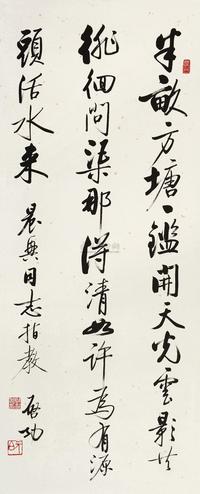 半畝方塘一鑑開天光雲影共
徘徊問渠那得清如許為有源
頭活水来 晨同志指教 启功